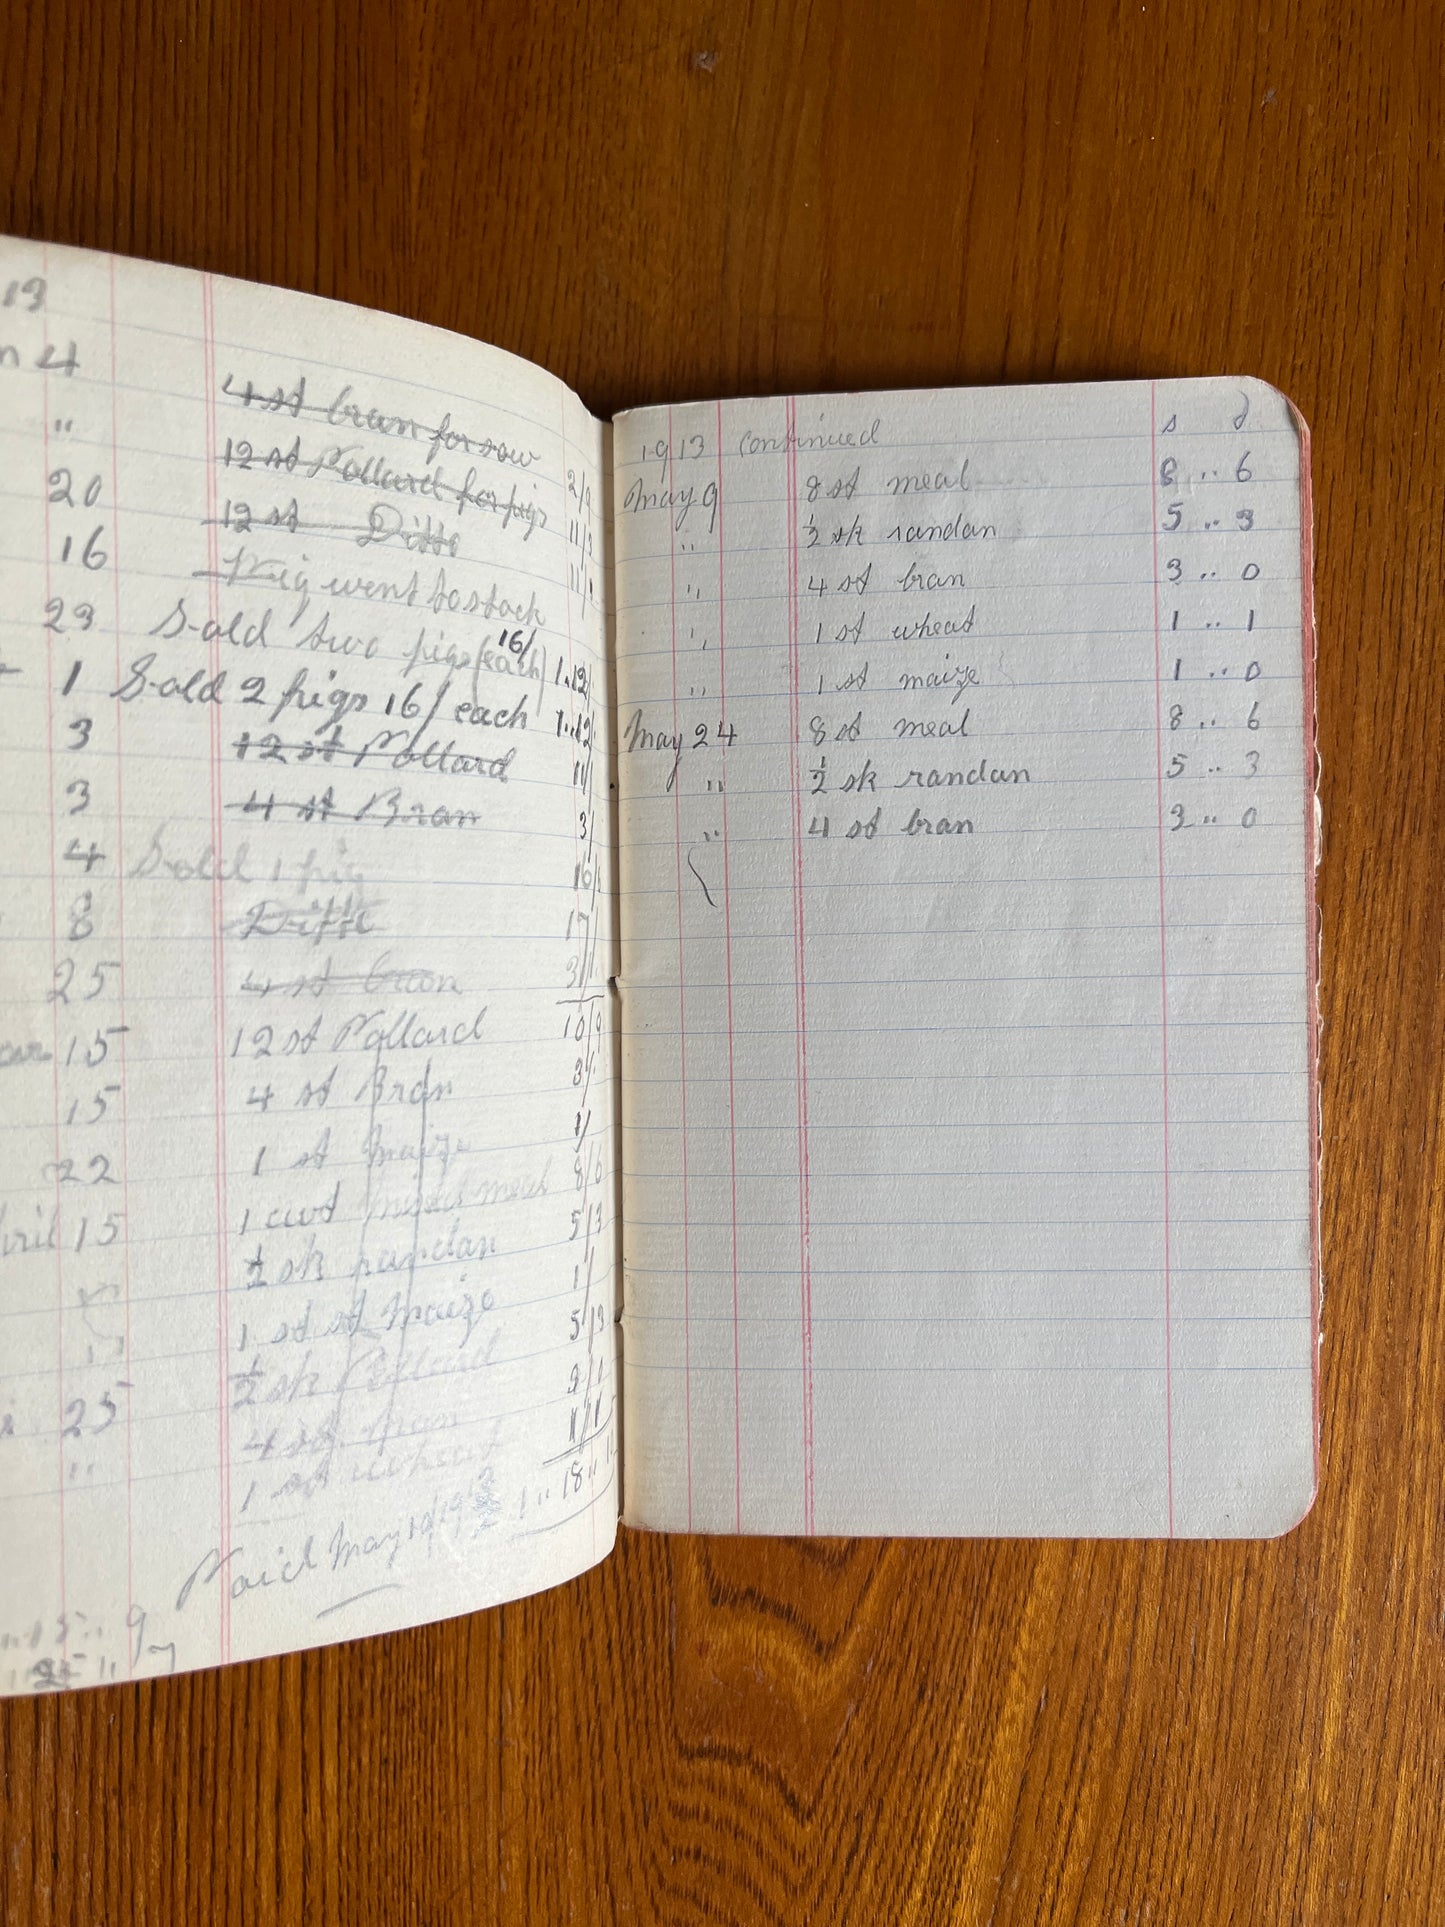 13
n 4 4 st bran for sow 2/9
" 12 st Pollard for pigs 11/3
20 12 st Ditto 11/
16 Pig went to stock
23 Sold two pigs (16/ each) 1..12/
1 Sold 2 pigs 16/ each 1..12/
3 12 st Pollard 11/
3 4 st Bran 3/
4 Sold 1 pig 16/
8 Ditto 17/
25 4 st bran 3/
15 12 st Pollard 10/9
15 4 st Bran 3/
22 1 st Maize 1/
ril 15 1 cwt mixed meal 8/6
½ sk randan 5/3
1 st Maize 1/
½ sk Pollard 5/3
25 4 st bran
" 1 st wheat 1/1
1 " 18 "
Paid May 10/1913
15 .. 9
1913 continued s d
May 9 8 st meal 8 .. 6
" ½ sk randan 5 .. 3
" 4 st bran 3 .. 0
" 1 st wheat 1 .. 1
" 1 st maize 1 .. 0
May 24 8 st meal 8 .. 6
" ½ sk randan 5 .. 3
" 4 st bran 3 .. 0